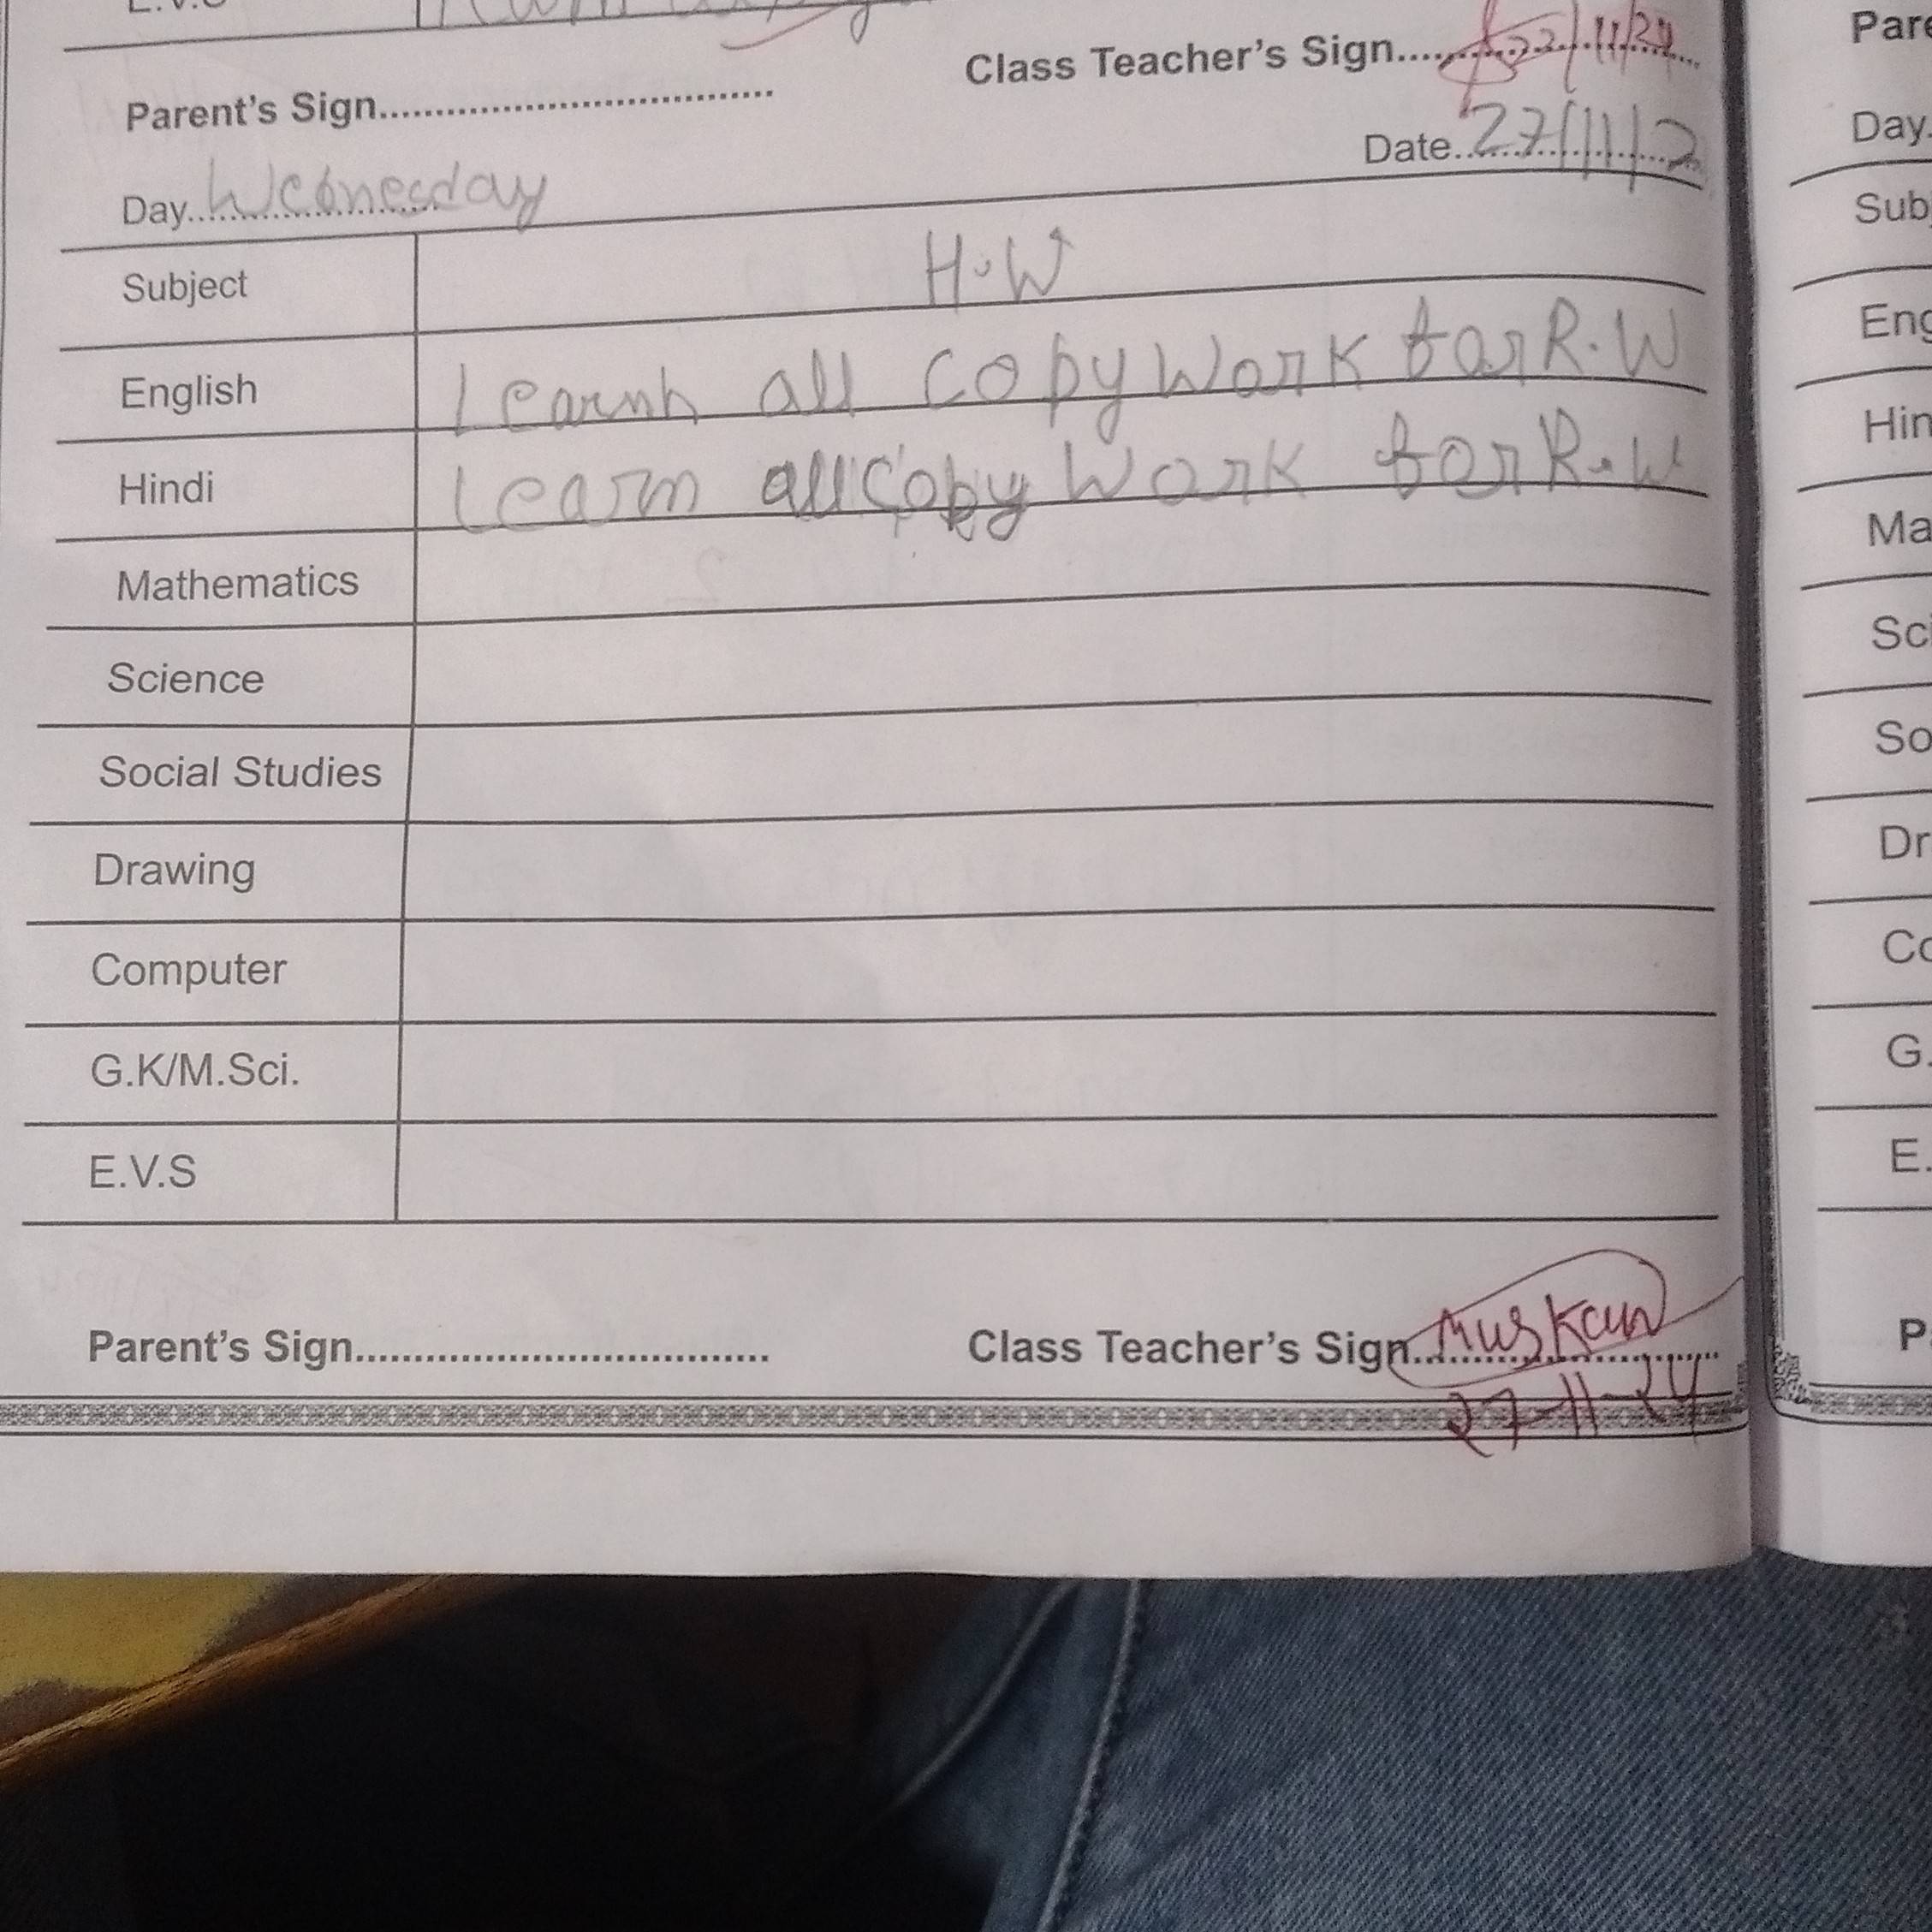 E.V.S
Class Teacher's Sign.......... 22/11/24
Parent's Sign..................................
Date 27/11/2
Day Wednesday
Subject H.W
English Learnh all copy Work for R.W
Hindi Learn all Copy Work for R.W
Mathematics
Science
Social Studies
Drawing
Computer
G.K/M.Sci.
E.V.S
Parent's Sign..................................
Class Teacher's Sign.......... Muskan
27-11-24
Pare
Day.
Sub
Eng
Hin
Ma
Sci
So
Dr
Co
G.
E.
P